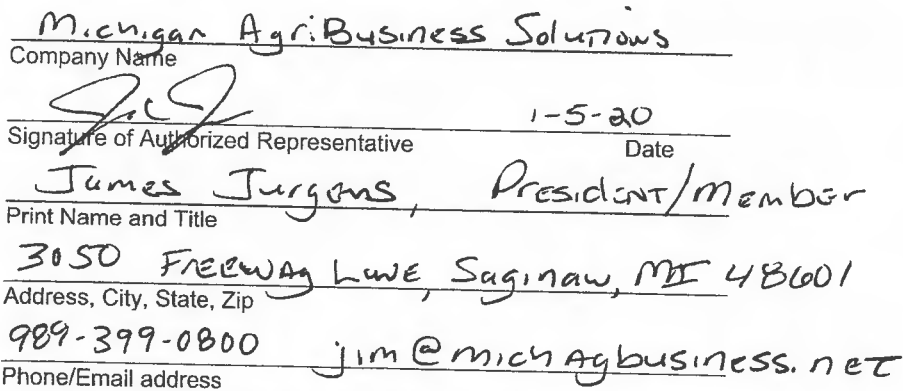 Michigan AgriBusiness Solutions
Company Name
1-5-20
Signature of Authorized Representative Date
James Jurgens, President/Member
Print Name and Title
3050 Freeway Lane, Saginaw, MI 48601
Address, City, State, Zip
989-399-0800 jim@michagbusiness.net
Phone/Email address